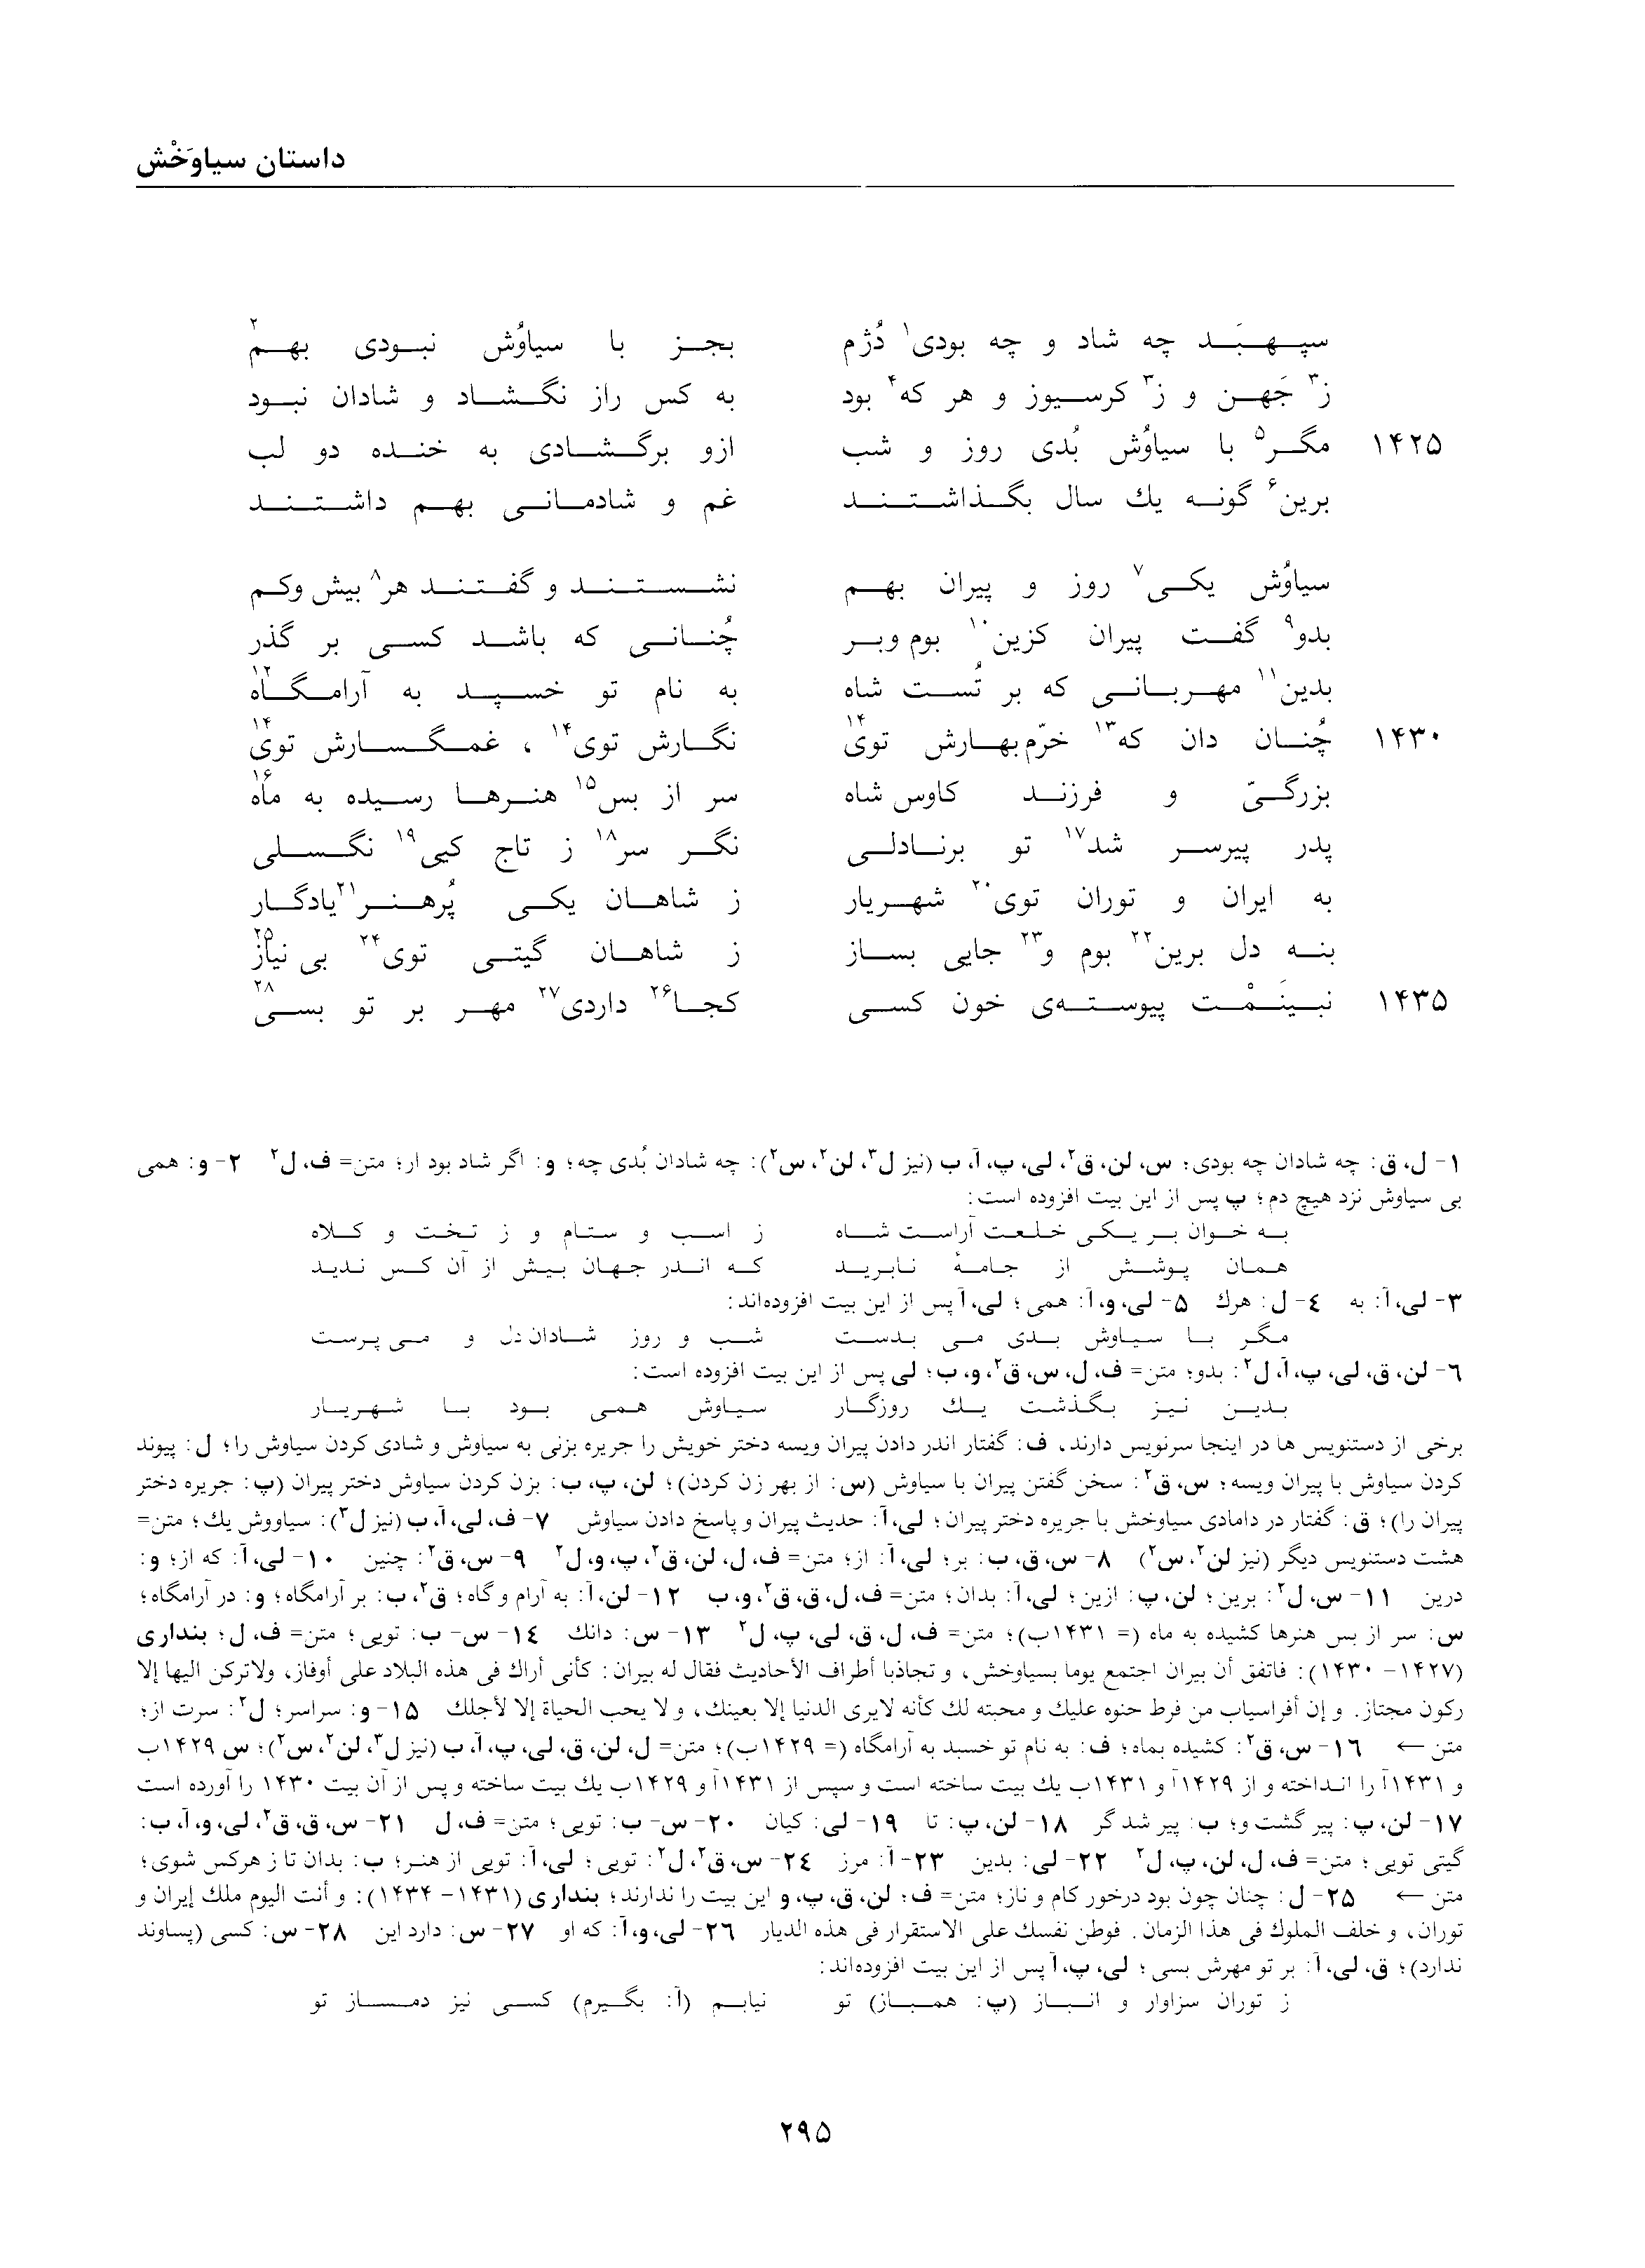 داستان سیاوَخْش
سپهبَد چه شاد و چه بودی۱ دُژم بجز با سیاوُش نبودی بهم۲
ز۳ جَهن و ز۳ کرسیوز و هر که۴ بود به کس راز نگشاد و شادان نبود
۱۴۲۵ مگر۵ با سیاوُش بُدی روز و شب ازو برگشادی به خنده دو لب
برین۶ گونه یك سال بگذاشتند غم و شادمانی بهم داشتند
سیاوُش یکی۷ روز و پیران بهم نشستند و گفتند هر۸ بیش وکم
بدو۹ گفت پیران کزین۱۰ بوم وبر چُنانی که باشد کسی بر گذر
بدین۱۱ مهربانی که بر تُست شاه به نام تو خسپد به آرامگاه۱۲
۱۴۳۰ چُنان دان که۱۳ خرّم بهارش توی۱۴ نگارش توی۱۴ ، غمگسارش توی۱۴
بزرگیّ و فرزند کاوس شاه سر از بس۱۵ هنرها رسیده به ماه۱۶
پدر پیرسر شد۱۷ تو برنادلی نگر سر۱۸ ز تاج کیی۱۹ نگسلی
به ایران و توران توی۲۰ شهریار ز شاهان یکی پُرهنر۲۱ یادگار
بنه دل برین۲۲ بوم و۲۳ جایی بساز ز شاهان گیتی توی۲۴ بی نیاز۲۵
۱۴۳۵ نبینَمْت پیوسته‌ی خون کسی کجا۲۶ داردی۲۷ مهر بر تو بسی۲۸
۱- ل، ق: چه شادان چه بودی؛ س، لن، ق۲، لی، پ، آ، ب (نیز ل۳، لن۲، س۲): چه شادان بُدی چه؛ و: اگر شاد بود ار؛ متن= ف، ل۲ ۲- و: همی
بی سیاوش نزد هیچ دم؛ پ پس از این بیت افزوده است:
به خوان بر یکی خلعت آراست شاه ز اسب و ستام و ز تخت و کلاه
همان پوشش از جامهٔ نابرید که اندر جهان بیش از آن کس ندید
۳- لی، آ: به ٤- ل: هرك ۵- لی، و، آ: همی؛ لی، آ پس از این بیت افزوده‌اند:
مگر با سیاوش بدی می بدست شب و روز شادان دل و می پرست
٦- لن، ق، لی، پ، آ، ل۲: بدو؛ متن= ف، ل، س، ق۲، و، ب؛ لی پس از این بیت افزوده است:
بدین نیز بگذشت یك روزگار سیاوش همی بود با شهریار
برخی از دستنویس ها در اینجا سرنویس دارند، ف: گفتار اندر دادن پیران ویسه دختر خویش را جریره بزنی به سیاوش و شادی کردن سیاوش را؛ ل: پیوند
کردن سیاوش با پیران ویسه؛ س، ق۲: سخن گفتن پیران با سیاوش (س: از بهر زن کردن)؛ لن، پ، ب: بزن کردن سیاوش دختر پیران (پ: جریره دختر
پیران را)؛ ق: گفتار در دامادی سیاوخش با جریره دختر پیران؛ لی، آ: حدیث پیران و پاسخ دادن سیاوش ۷- ف، لی، آ، ب (نیز ل۳): سیاووش یك؛ متن=
هشت دستنویس دیگر (نیز لن۲، س۲) ۸- س، ق، ب: بر؛ لی، آ: از؛ متن= ف، ل، لن، ق۲، پ، و، ل۲ ۹- س، ق۲: چنین ۱۰- لی، آ: که از؛ و:
درین ۱۱- س، ل۲: برین؛ لن، پ: ازین؛ لی، آ: بدان؛ متن= ف، ل، ق، ق۲، و، ب ۱۲- لن، آ: به آرام و گاه؛ ق۲، ب: بر آرامگاه؛ و: در آرامگاه؛
س: سر از بس هنرها کشیده به ماه (= ۱۴۳۱ب)؛ متن= ف، ل، ق، لی، پ، ل۲ ۱۳- س: دانك ۱٤- س- ب: تویی؛ متن= ف، ل؛ بنداری
(۱۴۲۷- ۱۴۳۰): فاتفق أن بیران اجتمع یوما بسیاوخش، و تجاذبا أطراف الأحادیث فقال له بیران: كأنی أراك فی هذه البلاد علی أوفاز، ولاتركن الیها إلا
ركون مجتاز. و إن أفراسیاب من فرط حنوه علیك و محبته لك كأنه لایری الدنیا إلا بعینك، و لا یحب الحیاة إلا لأجلك ۱۵- و: سراسر؛ ل۲: سرت از؛
متن ← ۱٦- س، ق۲: کشیده بماه؛ ف: به نام تو خسبد به آرامگاه (= ۱۴۲۹ب)؛ متن= ل، لن، ق، لی، پ، آ، ب (نیز ل۳، لن۲، س۲)؛ س ۱۴۲۹ب
و ۱۴۳۱آ را انداخته و از ۱۴۲۹آ و ۱۴۳۱ب یك بیت ساخته است و سپس از ۱۴۳۱آ و ۱۴۲۹ب یك بیت ساخته و پس از آن بیت ۱۴۳۰ را آورده است
۱۷- لن، پ: پیر گشت و؛ ب: پیر شد گر ۱۸- لن، پ: تا ۱۹- لی: کیان ۲۰- س- ب: تویی؛ متن= ف، ل ۲۱- س، ق، ق۲، لی، و، آ، ب:
گیتی تویی؛ متن= ف، ل، لن، پ، ل۲ ۲۲- لی: بدین ۲۳- آ: مرز ۲٤- س، ق۲، ل۲: تویی؛ لی، آ: تویی از هنر؛ ب: بدان تا ز هرکس شوی؛
متن ← ۲۵- ل: چنان چون بود درخور کام و ناز؛ متن= ف؛ لن، ق، پ، و این بیت را ندارند؛ بنداری (۱۴۳۱- ۱۴۳۴): و أنت الیوم ملك إیران و
توران، و خلف الملوك فی هذا الزمان. فوطن نفسك علی الاستقرار فی هذه الدیار ۲٦- لی، و، آ: که او ۲۷- س: دارد این ۲۸- س: کسی (پساوند
ندارد)؛ ق، لی، آ: بر تو مهرش بسی؛ لی، پ، آ پس از این بیت افزوده‌اند:
ز توران سزاوار و انباز (پ: همباز) تو نیابم (آ: بگیرم) کسی نیز دمساز تو
۲۹۵